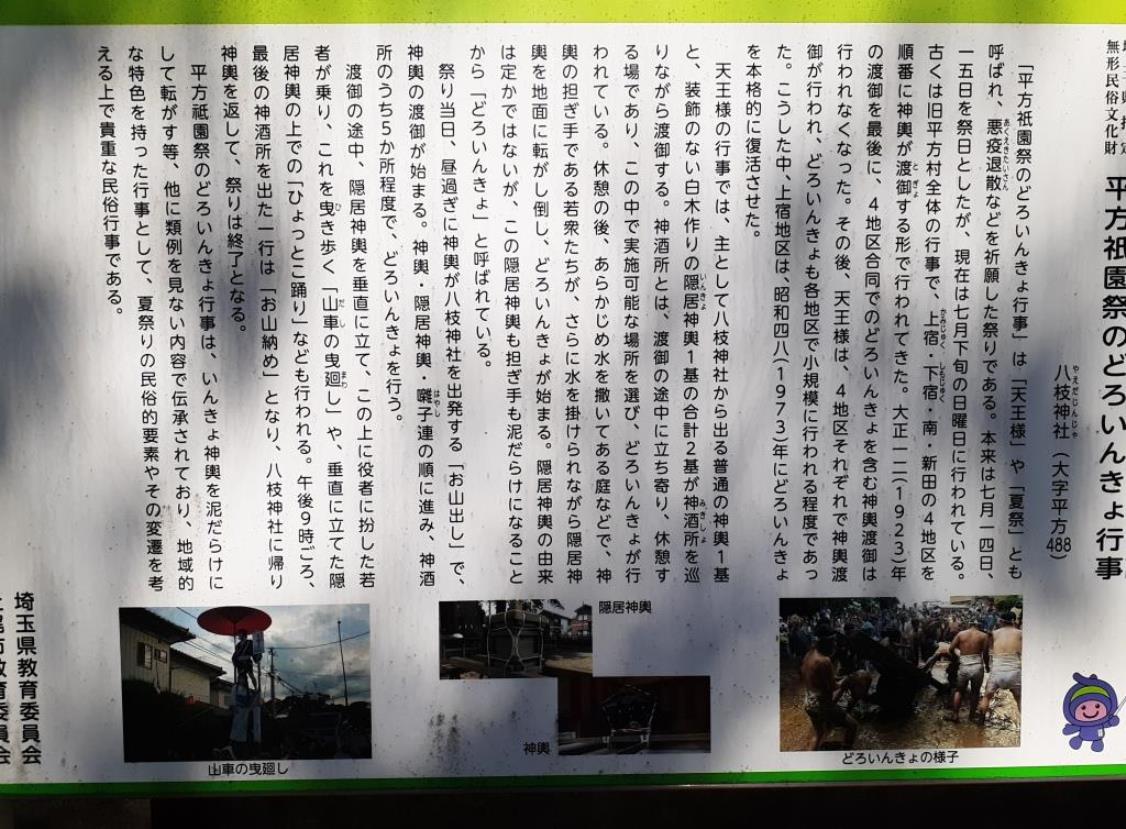 無形民俗文化財
平方祇園祭のどろいんきょ行事
八枝神社（大字平方488）
やえだじんじゃ
「平方祇園祭のどろいんきょ行事」は「天王様」や「夏祭」とも
呼ばれ、悪疫退散などを祈願した祭りである。本来は七月一四日、
あくえきたいさん
一五日を祭日としたが、現在は七月下旬の日曜日に行われている。
古くは旧平方村全体の行事で、上宿・下宿・南・新田の４地区を
かみじゅく しもじゅく
順番に神輿が渡御する形で行われてきた。大正一二（１９２３）年
とぎょ
の渡御を最後に、４地区合同でのどろいんきょを含む神輿渡御は
行われなくなった。その後、天王様は、４地区それぞれで神輿渡
御が行われ、どろいんきょも各地区で小規模に行われる程度であっ
た。こうした中、上宿地区は、昭和四八（１９７３）年にどろいんきょ
を本格的に復活させた。
天王様の行事では、主として八枝神社から出る普通の神輿１基
と、装飾のない白木作りの隠居神輿１基の合計２基が神酒所を巡
いんきょ みきしょ
りながら渡御する。神酒所とは、渡御の途中に立ち寄り、休憩す
る場であり、この中で実施可能な場所を選び、どろいんきょが行
われている。休憩の後、あらかじめ水を撒いてある庭などで、神
輿の担ぎ手である若衆たちが、さらに水を掛けられながら隠居神
輿を地面に転がし倒し、どろいんきょが始まる。隠居神輿の由来
は定かではないが、この隠居神輿も担ぎ手も泥だらけになること
から「どろいんきょ」と呼ばれている。
祭り当日、昼過ぎに神輿が八枝神社を出発する「お山出し」で、
神輿の渡御が始まる。神輿・隠居神輿・囃子連の順に進み、神酒
はやし
所のうち５か所程度で、どろいんきょを行う。
渡御の途中、隠居神輿を垂直に立て、この上に役者に扮した若
者が乗り、これを曳き歩く「山車の曳廻し」や、垂直に立てた隠
ひ だし まわ
居神輿の上での「ひょっとこ踊り」なども行われる。午後９時ごろ、
最後の神酒所を出た一行は「お山納め」となり、八枝神社に帰り
神輿を返して、祭りは終了となる。
平方祇園祭のどろいんきょ行事は、いんきょ神輿を泥だらけに
して転がす等、他に類例を見ない内容で伝承されており、地域的
な特色を持った行事として、夏祭りの民俗的要素やその変遷を考
える上で貴重な民俗行事である。
埼玉県教育委員会
上尾市教育委員会
どろいんきょの様子
隠居神輿
神輿
山車の曳廻し